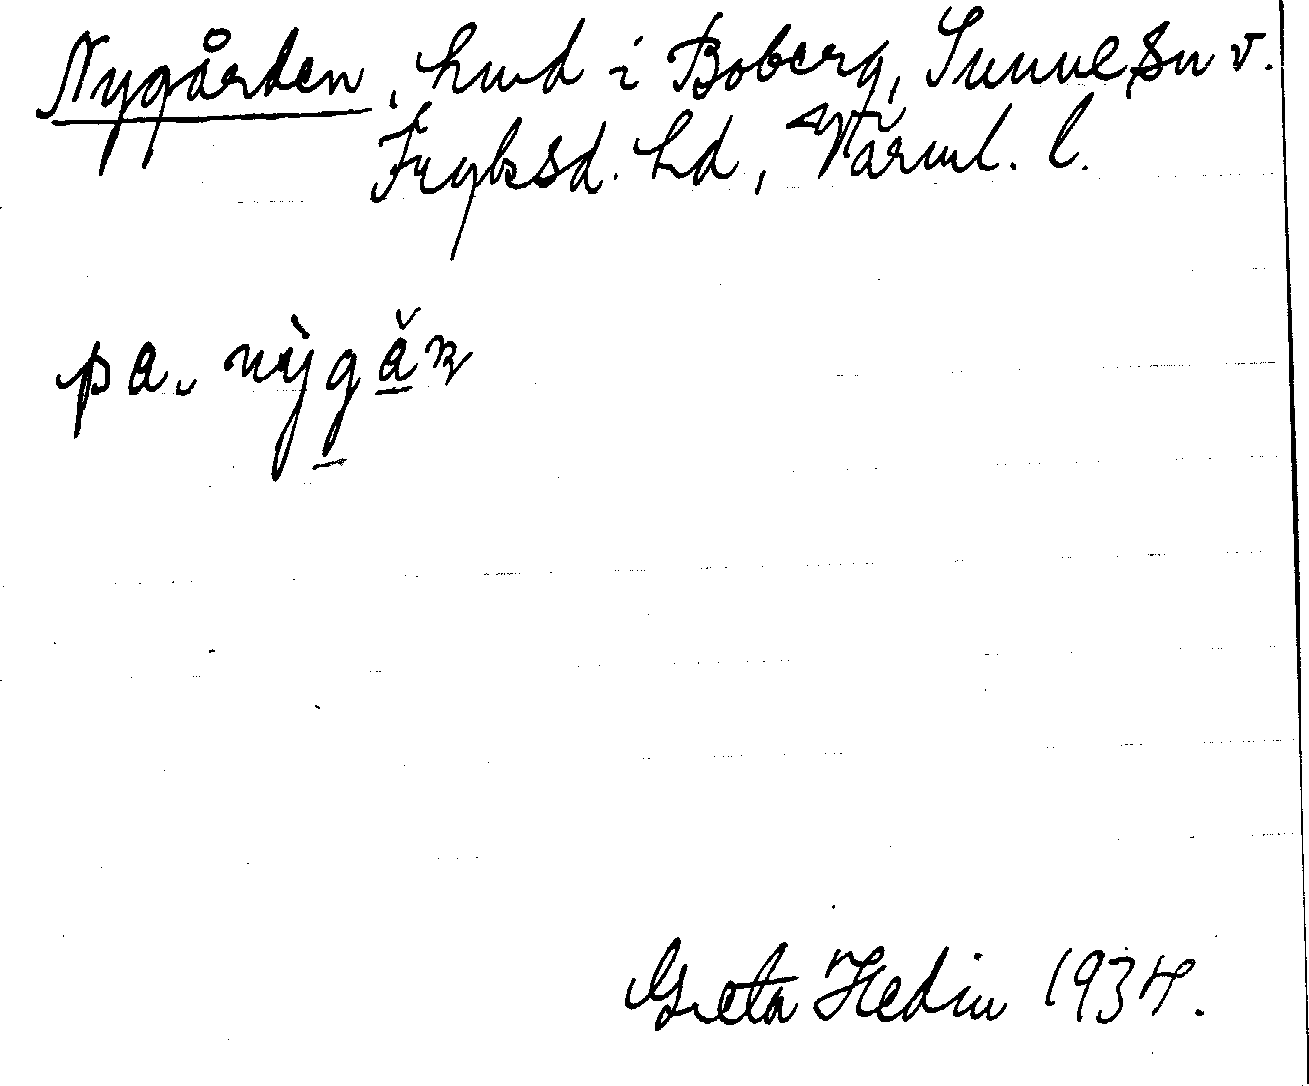 Nygården, hmd i Boberg, Sunne sn v.
Fryksd. hd, Värml. l.
pa. nỳgåṉ
Greta Hedin 1934.